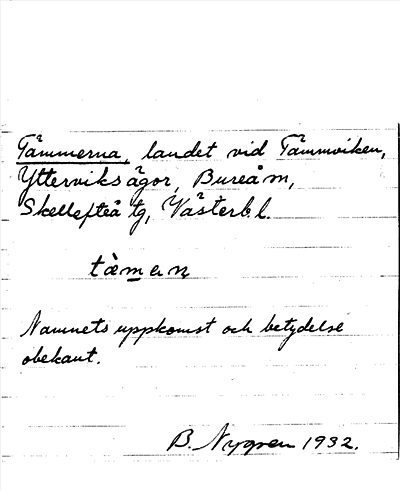 Tåmmerna, landet vid Tåmmviken,
Ytterviksågor, Bureå m,
Skellefteå tg, Västerb l.
tåmαn
Namnets uppkomst och betydelse
obekant.
B. Nygren 1932.